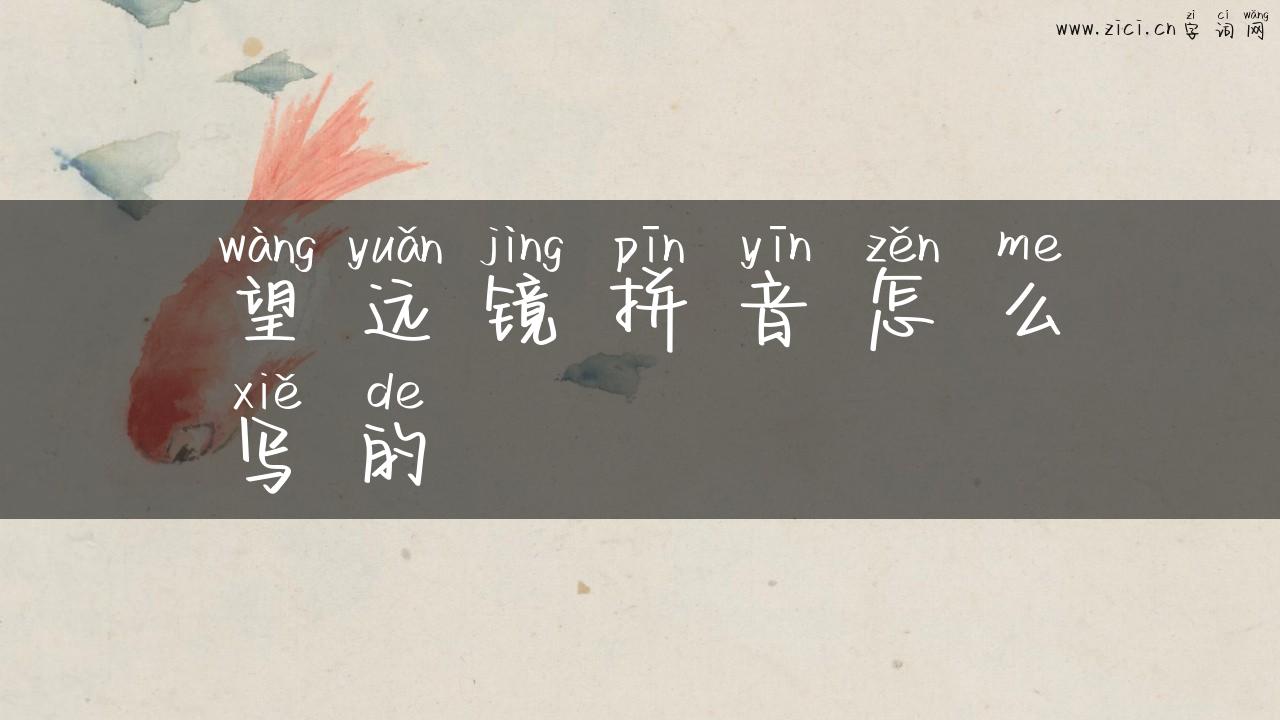 zì cí wǎng
www.zici.cn 字 词 网
wàng yuǎn jìng pīn yīn zěn me
望 远 镜 拼 音 怎 么
xiě de
写 的